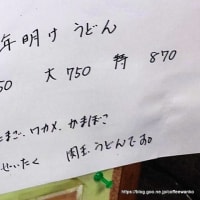 年明けうどん
50 大 750 特 870
たまご、ワカメ、かまぼこ
ぜいたく 肉玉うどんです。
https://blog.goo.ne.jp/coffeewanko